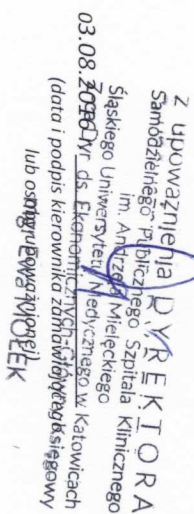 z upoważnienia DYREKTORA
Samodzielnego Publicznego Szpitala Klinicznego
im. Andrzeja Mielęckiego
Śląskiego Uniwersytetu Medycznego w Katowicach
03.08.2016 Z-ca Dyr. ds. Ekonomicznych-Główny Księgowy
(data i podpis kierownika zamawiającego
lub osoby upoważnionej)
mgr Ewa MOŁEK